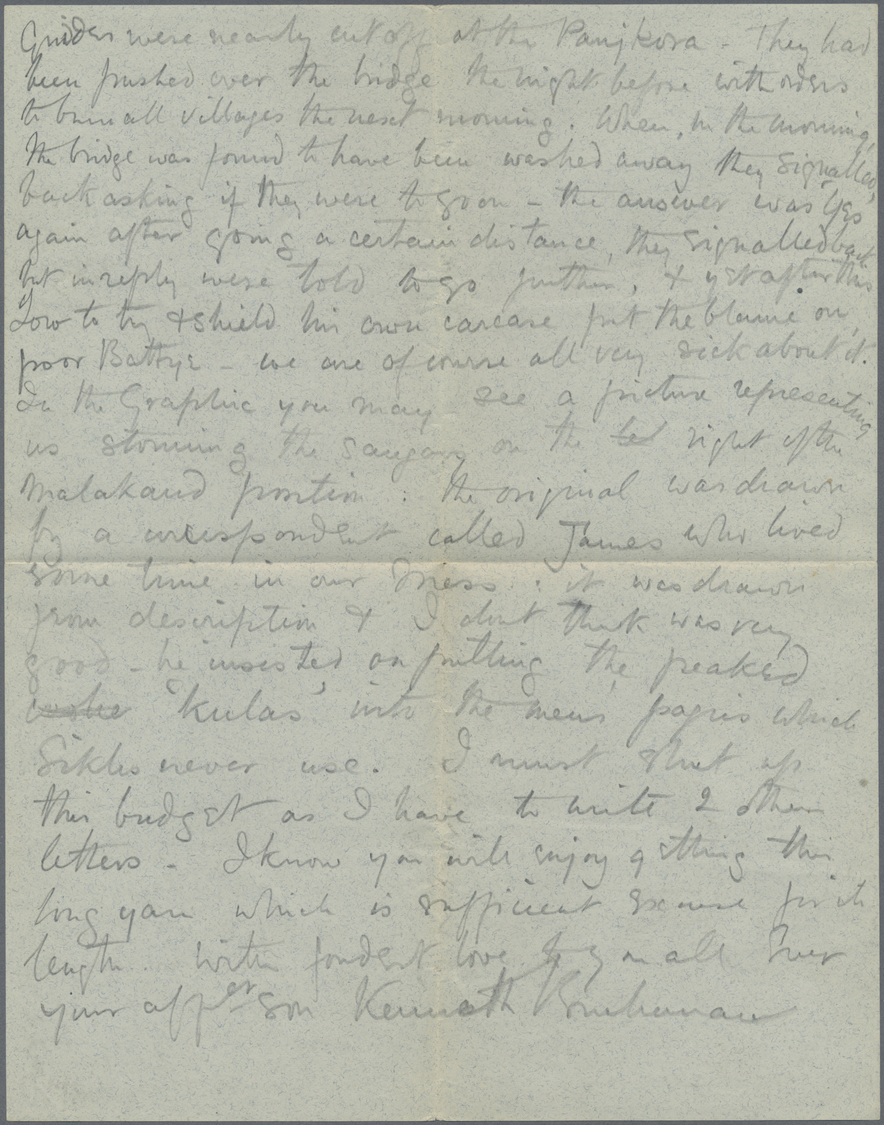 Guides were nearly cut off at the Panjkora - They had
been pushed over the bridge the night before with orders
to burn all villages the next morning. When, in the morning,
the bridge was found to have been washed away they signalled,
back asking if they were to go on - the answer was 'Yes'
again after going a certain distance, they signalled back
but in reply were told to go further, & yet after this
Low to try & shield his own carcase put the blame on,
poor Battye - we are of course all very sick about it.
In the Graphic you may see a picture representing
us storming the sangars on the right of the
Malakand position : the original was drawn
by a correspondent called James who lived
some time in our Mess : it was drawn
from description & I dont think was very
good - he insisted on putting the peaked
'kulas' into the mens' pagris which
Sikhs never use. I must shut up
this budget as I have to write 2 other
letters - I know you will enjoy getting this
long yarn which is sufficient excuse for its
length. With fondest love to you all Ever
your affec son Kenneth Buchanan